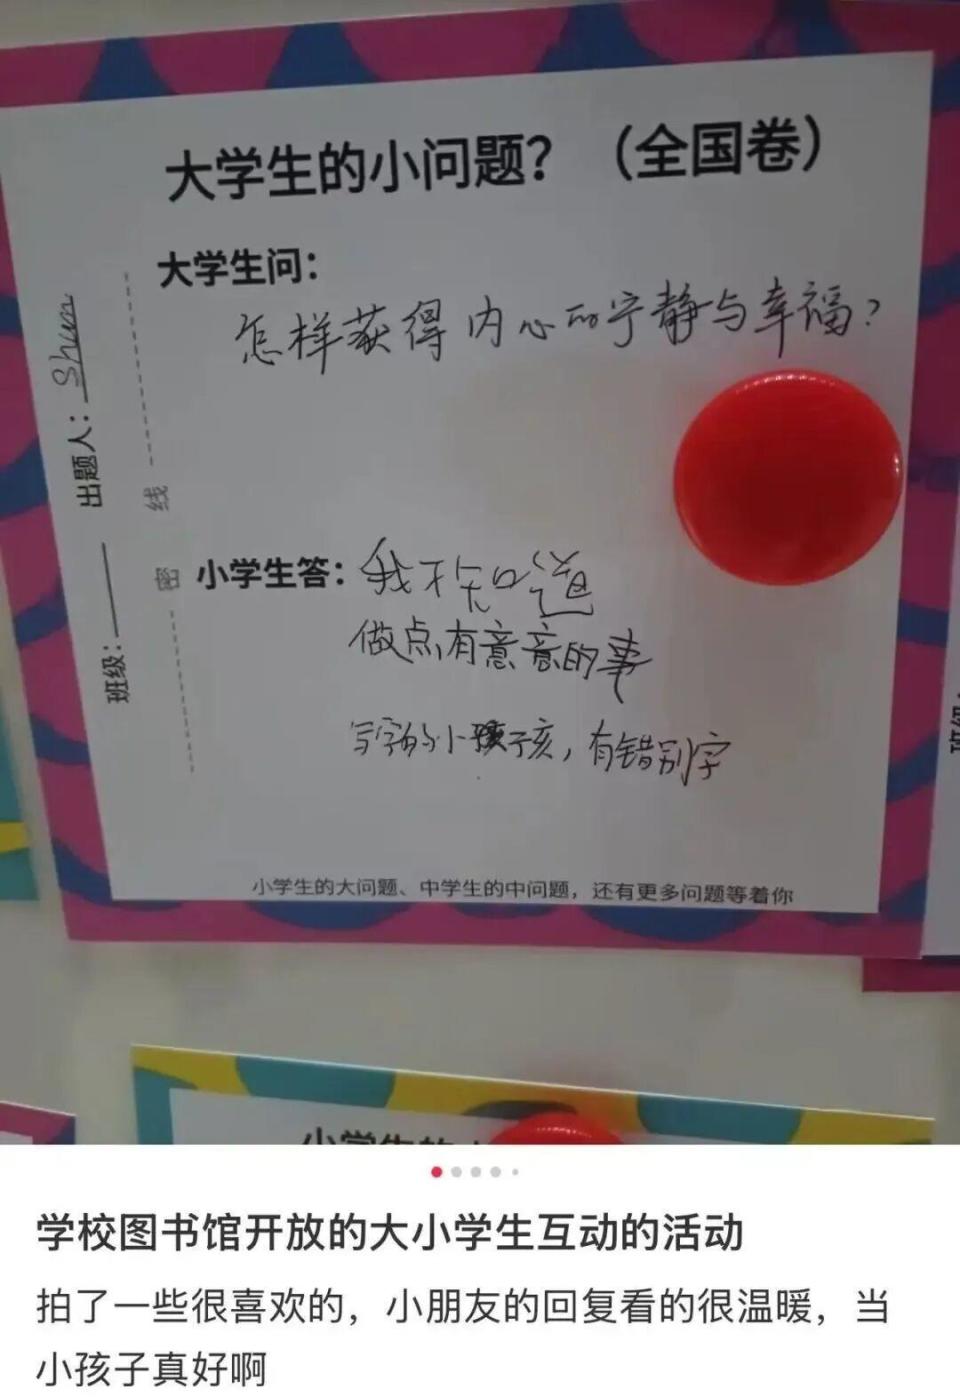 大学生的小问题？（全国卷）
大学生问：
怎样获得内心的宁静与幸福？
出题人：Shuen
班级：
密 线
小学生答：我不知道
做点有意意的事
写字的小孩子亥，有错别字
小学生的大问题、中学生的中问题，还有更多问题等着你
学校图书馆开放的大小学生互动的活动
拍了一些很喜欢的，小朋友的回复看的很温暖，当
小孩子真好啊